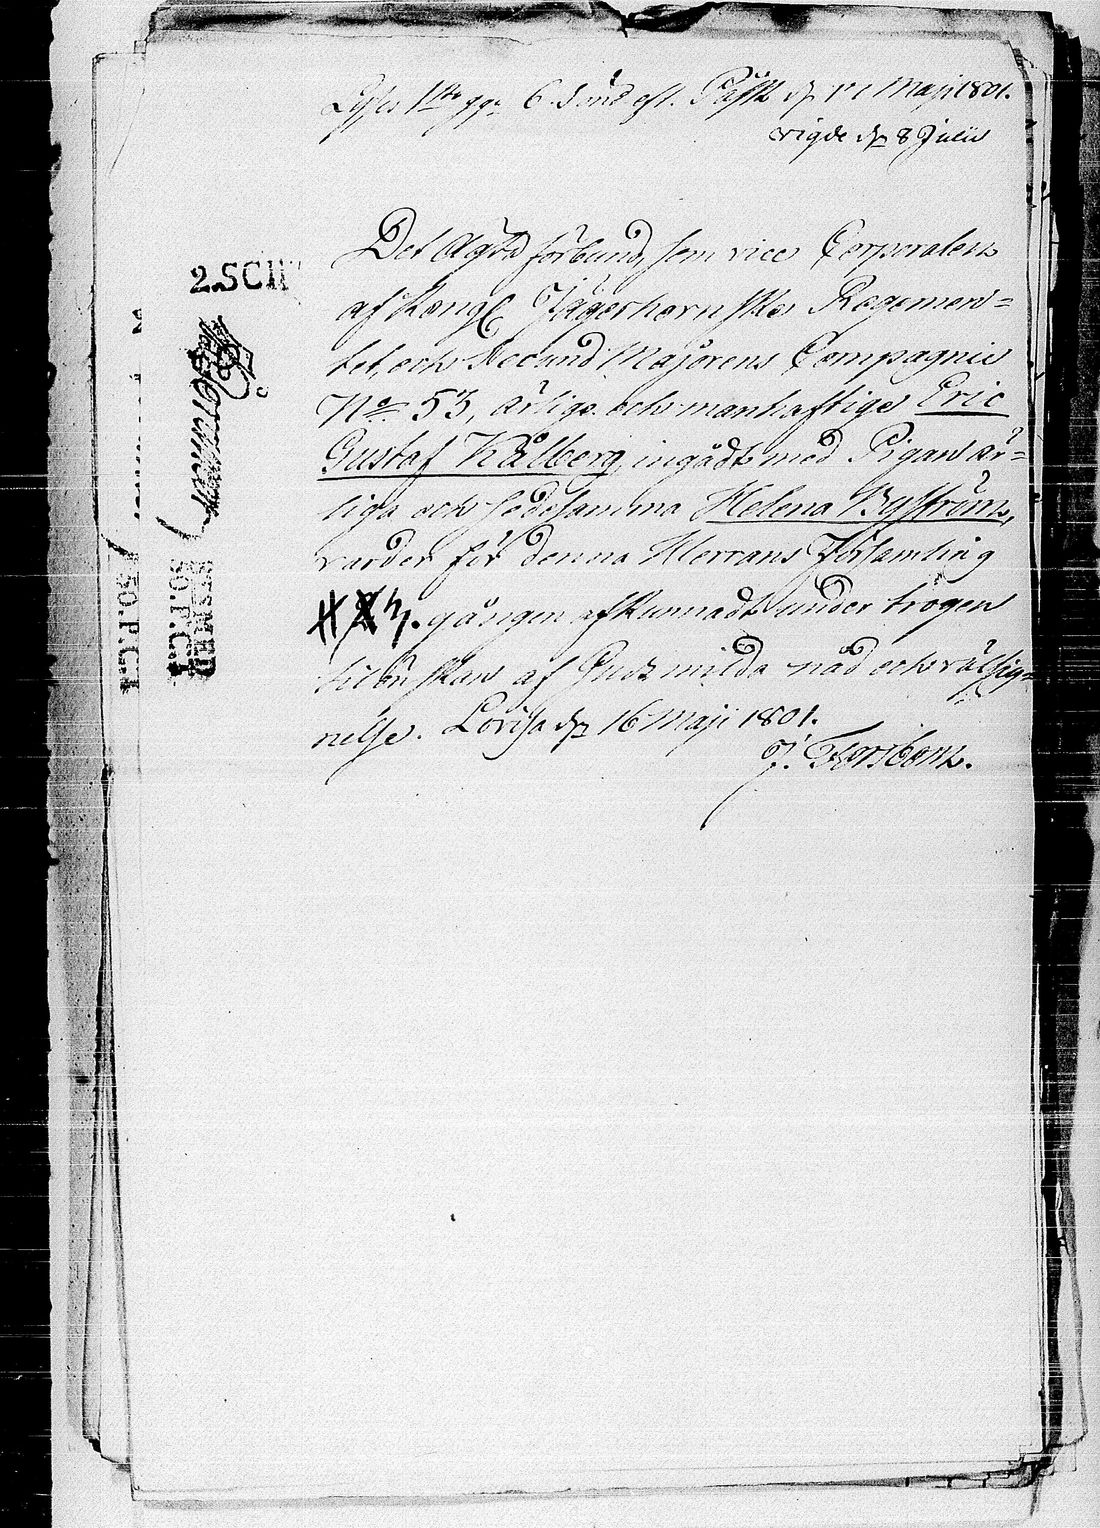 Lyses 1sta gg. 6. Sönd. eft. Påsk d. 17 Maji 1801.
vigde d. 8 Julii
Det Ägta förbund, som vice Corporalen
af Kongl Jägerhornska Regemen=
tet, och Second Majorens Compagnie
No 53, ärlige och manhaftige Eric
Gustaf Kålberg, ingådt med Pigan är=
liga och sedesamma Helena Byström,
varder för denna Herrans Församling
3. gången afkunnadt under trogen
tillönskan af Guds milda nåd och välsig=
nelse. Lovisa d. 16 Maji 1801.
J. Forsbom.
2.SCH